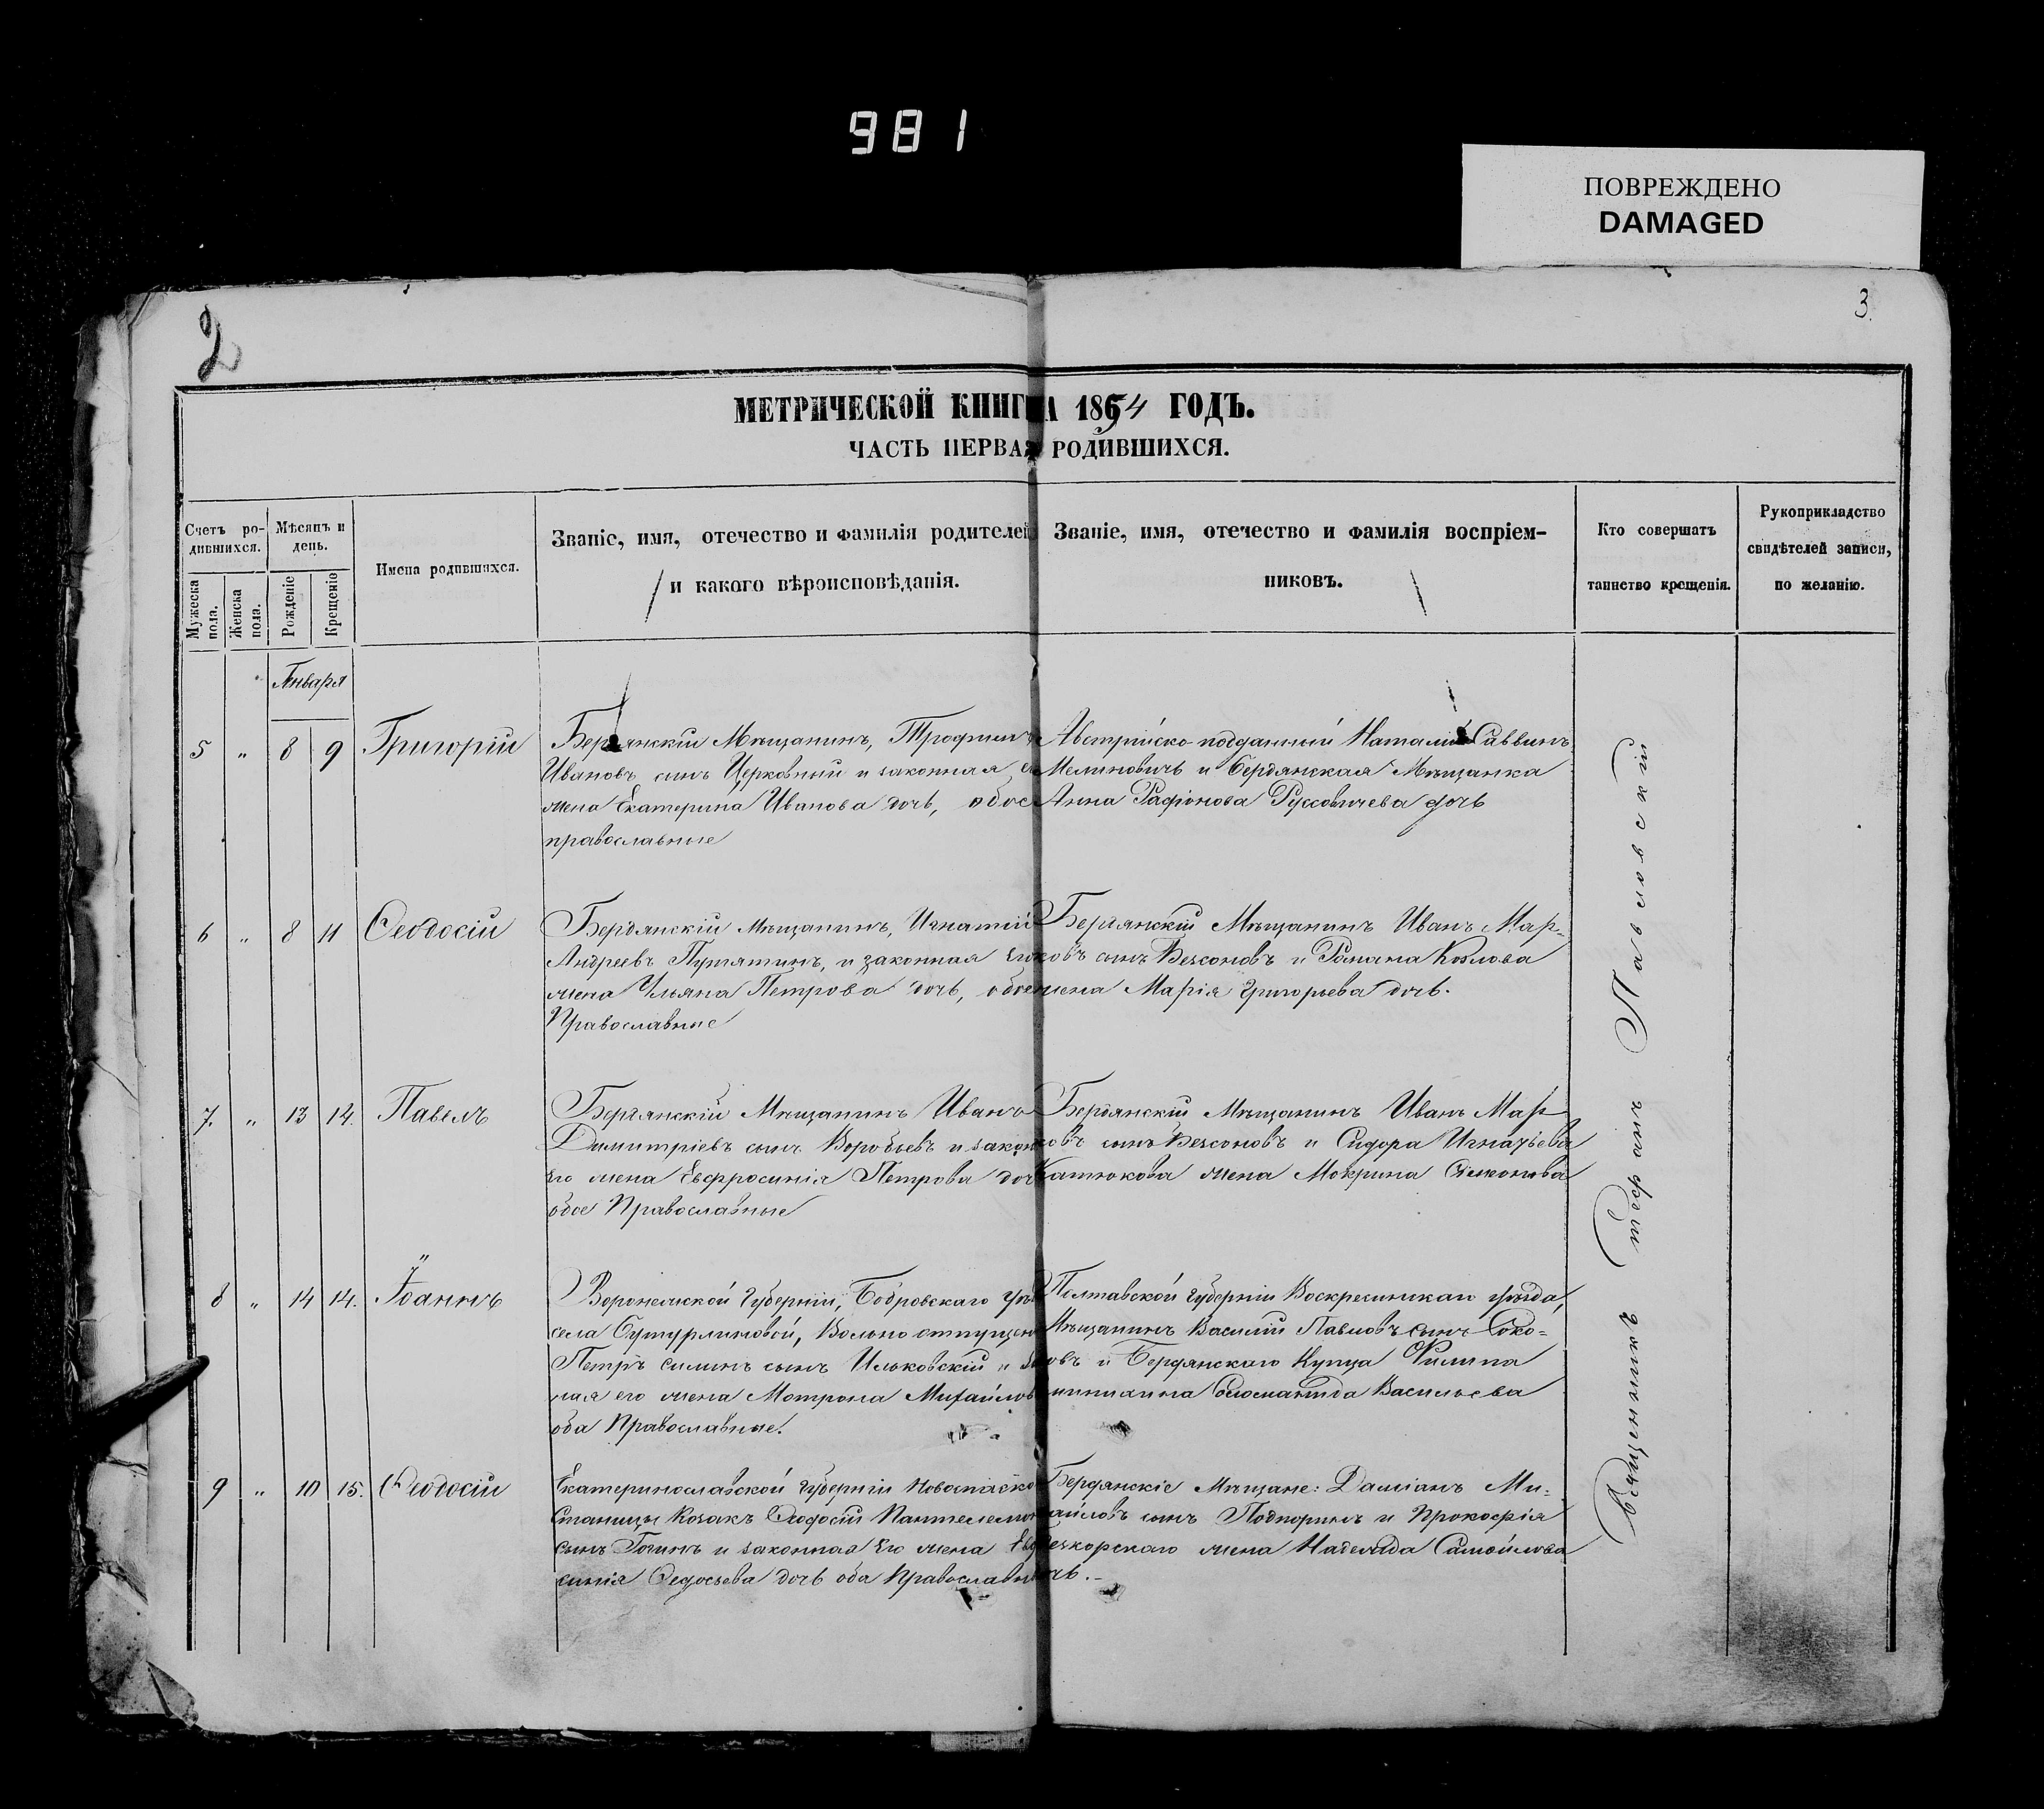 981
ПОВРЕЖДЕНО
DAMAGED
2
3.
МЕТРИЧЕСКОЙ КНИГИ НА 1854 ГОДЪ.
ЧАСТЬ ПЕРВАЯ РОДИВШИХСЯ.
Счетъ ро-
дившихся.
Мужеска пола.
Женска пола.
Мѣсяцъ и
день.
Рожденіе
Крещеніе
Имена родившихся.
Званіе, имя, отечество и фамилія родителей
и какого вѣроисповѣданія.
Званіе, имя, отечество и фамилія воспріем-
никовъ.
Кто совершатъ
таинство крещенія.
Рукоприкладство
свидѣтелей записи,
по желанію.
Января
5 " 8 9 Григорій
Бердянскій Мѣщанинъ, Трофимъ
Ивановъ сынъ Церковный и законная
жена Екатерина Иванова дочь, обое
православные
Австрійско подданный Саввинъ
и бердянская Мѣщанка
Анна дочь
6 " 8 11 Ѳеодосій
Бердянскій Мѣщанинъ, Игнатій
Андреевъ Путятинъ, и законная Его
жена Ульяна Петрова дочь, обое
Православные
Бердянскій Мѣщанинъ Иванъ Мар-
ковъ сынъ Безсоновъ и Романа Козлова
жена Марія Григорьева дочь.
7. " 13 14. Павелъ
Бердянскій Мѣщанинъ Иванъ
Димитріевъ сынъ Воробьевъ и закон
Его жена Евфросинія Петрова доч
обое Православные
Бердянскій Мѣщанинъ Иванъ Мар
ковъ сынъ Безсоновъ и Сидора Игнатьева
Катюкова жена Мокрина Симонова
8 " 14 14. Іоаннъ
Воронежской Губерніи, Бобровскаго уѣз
села Бутурлиновой, Вольно отпущен
Петръ Силинъ сынъ Ильковскій и
ная его жена Мотрона Михайлов
оба Православные.
Полтавской Губерніи уѣзда,
Мѣщанинъ Василій Павловъ сынъ Соко-
овъ и Бердянскаго Купца Филипа
Васильева
9 " 10 15. Ѳеодосій
Екатеринославской Губерніи Новоспаско
Станицы Козакъ Ѳеодосій Пантелеимон
сынъ и законная Его жена Евфро
синія Ѳедосьева дочь оба Православны
Бердянскіе Мѣщане: Даміанъ Ми-
хайловъ сынъ Подпоринъ и Прокофія
жена Надежда Самойлова
дочь.
Священникъ Стефанъ Павловскій